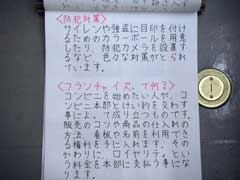 <防犯対策>
サイレンや強盗に目印を付け
るためのカラーボールを用意
したり、防犯カメラを設置す
るなど、色々な対策がとられ
ています。
<フランチャイズ、て何？>
コンビニを始めたい人が、コ
ンビニ本部とけい約を交わす
事によ、て成り立つものです。
販売のコツや商品の仕入れの
方法、看板や名前を利用でき
る権利を手に入れます。その
かわりに、ロイヤリティとい
う料金を本部に支払う事にな
ります。